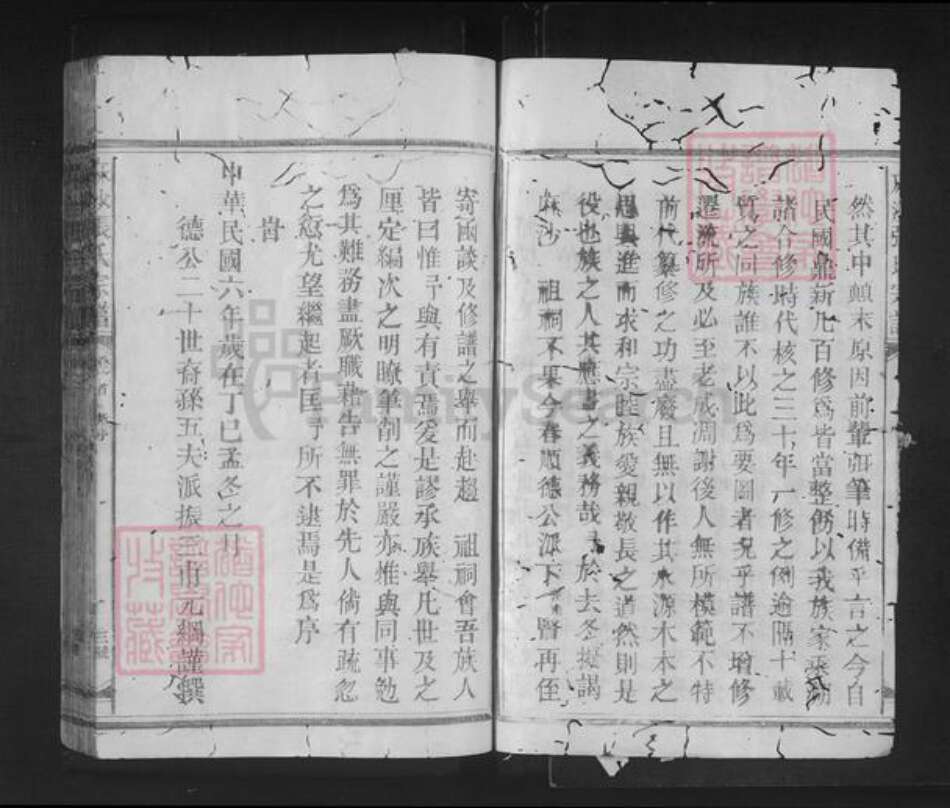 然其中顛末原因前輩弭筆時備乎言之今自
民國鼎新凡百修爲皆當整飭以我族家乘溯
諸合修時代核之三十年一修之例逾隔十載
質之同族誰不以此爲要圖者况乎譜不增修
遷流所及必至老成凋謝後人無所模範不特
前代纂修之功盡廢且無以作其水源木本之
思與進而求和宗睦族愛親敬長之道然則是
役也族之人其應盡之義務哉予於去冬擬謁
沙 祖祠不果今春順德公派下 賢再侄
寄函談及修譜之舉而赴趨 祖祠會吾族人
皆曰惟予與有責焉爰是謬承族舉凡世及之
厘定編次之明瞭筆削之謹嚴亦惟與同事勉
爲其難務盡厥職藉告無罪於先人倘有疏忽
之愆尤望繼起者匡予所不逮焉是爲序
旹
中華民國六年歲在丁巳孟冬之月
德公二十世裔孫五大派振 元綱謹撰
張氏宗譜
FamilySearch